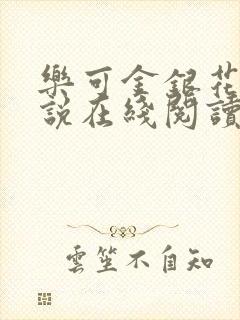 樂可金銀花
說在綫閱讀
雲笙不自知